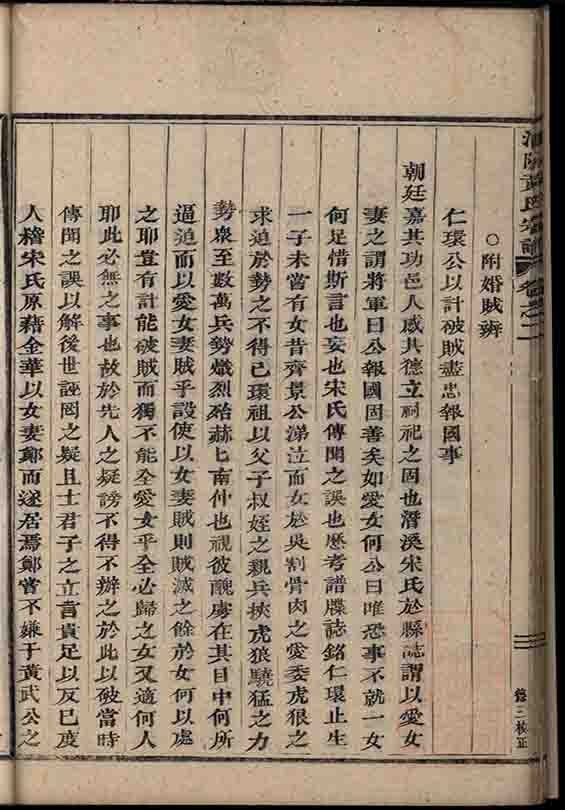 浦陽黃氏宗譜 卷之二
○附婚賊辨
仁環公以計破賊盡忠報國事
朝廷嘉其功邑人感其德立祠祀之固也潛溪宋氏於縣誌謂以愛女
妻之謂將軍曰公報國固善矣如愛女何公曰唯恐事不就一女
何足惜斯言也妄也宋氏傳聞之誤也歷考譜牒誌銘仁環止生
一子未嘗有女昔齊景公涕泣而女於吳割骨肉之愛委虎狼之
求迫於勢之不得已環祖以父子叔姪之親兵挾虎狼驍猛之力
勢衆至數萬兵勢熾烈殆赫匕南仲也視彼醜虜在其目中何所
逼迫而以愛女妻賊乎設使以女妻賊則賊滅之餘於女何以處
之耶豈有計能破賊而獨不能全愛女乎全必歸之女又適何人
耶此必無之事也故於先人之疑謗不得不辦之於此以破當時
傳聞之誤以解後世誣罔之疑且士君子之立言貴足以反已度
人稽宋氏原藉金華以女妻鄭而遂居焉鄭嘗不嫌于黃武公之